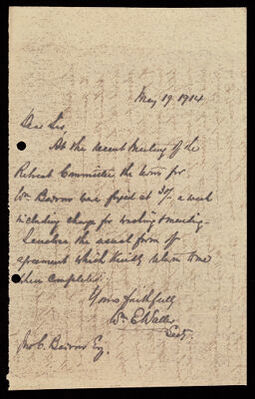 May 19. 1914
Dear Sir,
At the recent Meeting of the
Retreat Committee the terms for
Wm Bairow was fixed at 30/- a week
including charge for washing & mending.
I enclose the usual form of
agreement which kindly return to me
when completed.
Yours faithfully
Wm E Waller
Secty.
Jno C. Bairow Esq.